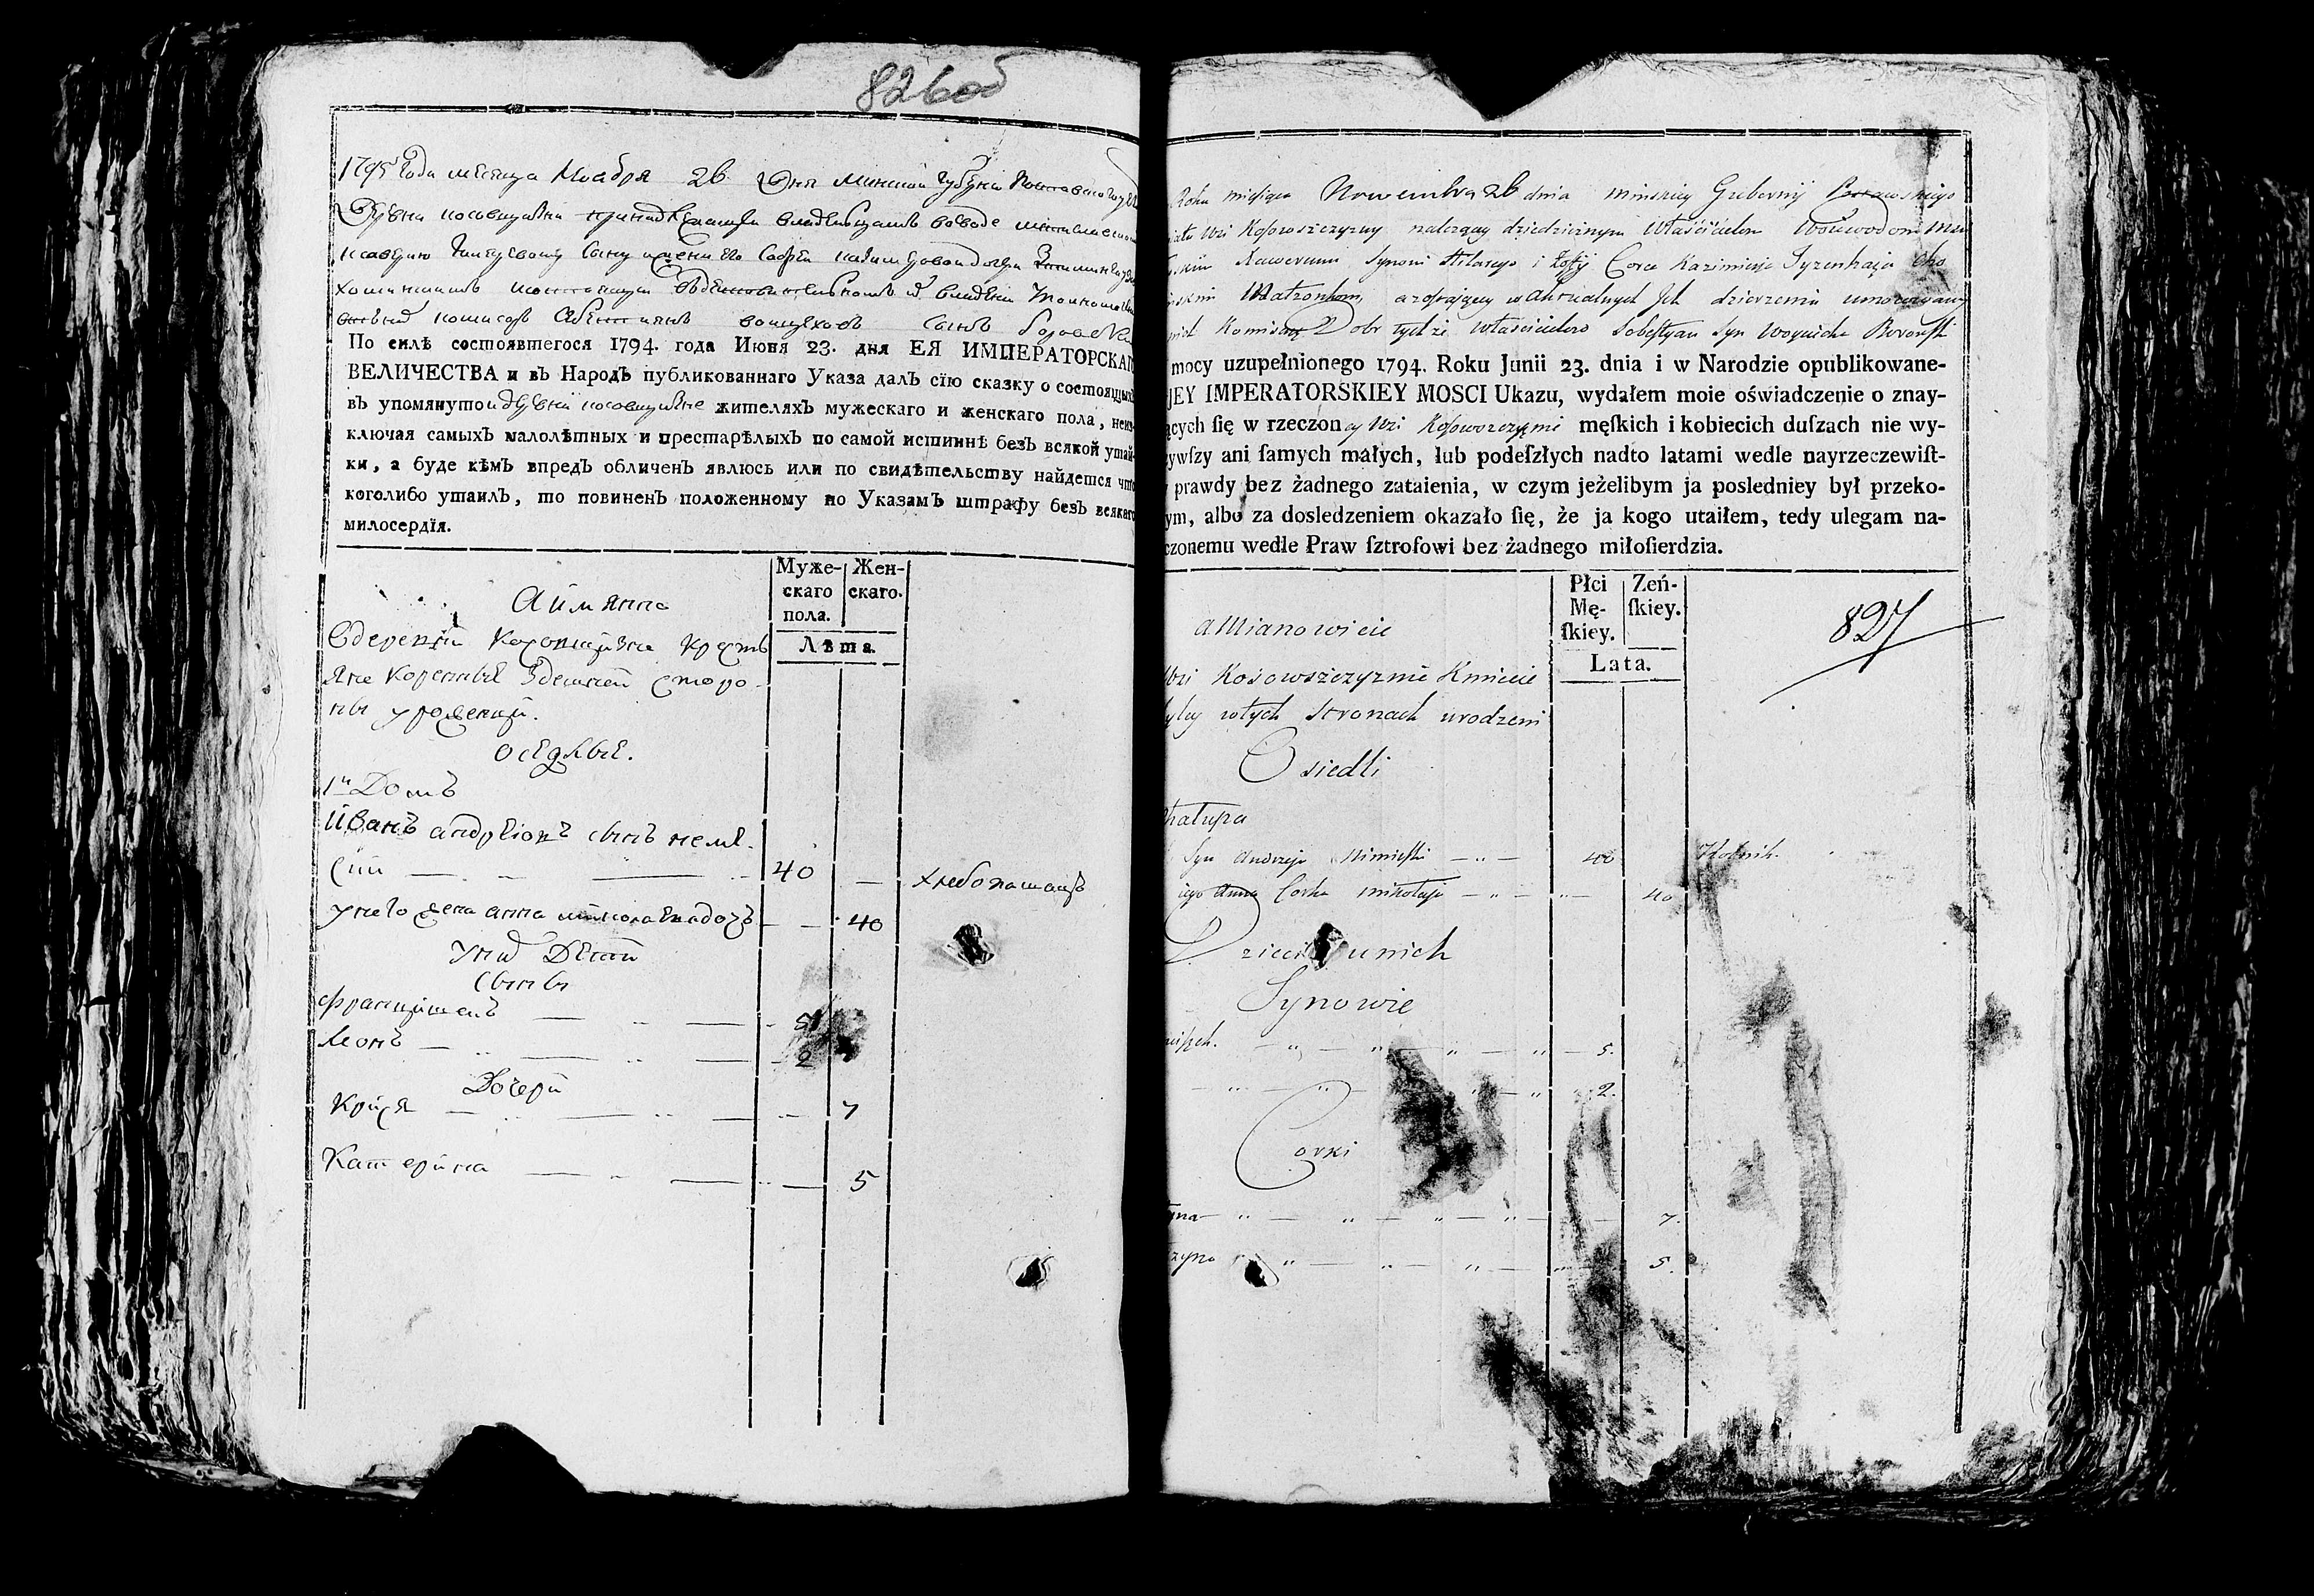 826об
1795 года месеца Ноабря 26 Дня минской губерни
Деревни косовщизни принадлежащей
По силѣ состоявшегося 1794. года Июня 23. дня ЕЯ ИМПЕРАТОРСКАГ
ВЕЛИЧЕСТВА и въ Народъ публикованнаго Указа далъ сїю сказку о состоящих
въ упомянутой деревни косовщизне жителяхъ мужескаго и женскаго пола, неис-
ключая самыхъ малолѣтныхъ и престарѣлыхъ по самой истиннѣ безъ всякой утай-
ки, а буде кѣмъ впредъ обличенъ явлюсь или по свидѣтельству найдется что
коголибо утаилъ, то повиненъ положенному по Указамъ штрафу безъ всякаго
милосердїя.
Муже-
скаго
пола.
Жен-
скаго.
Лѣта.
Аймянно
Вдеревни Косовщизне крестъ
яне коренные Здешней сторо
ны уроженци.
оседлые.
1й Домъ
Иванъ андреіовъ сынъ неме
сий 40 хлебопашацъ
унего жена анна миколаева дочъ 40
Уних Дети
Сыны
францишекъ 5
Леонъ 2
Дочери
Крися 7
Катерина 5
Roku miesiąca Nowembra 26 dnia minskiey Gubernij
wsi Kosowszczyzny należącey dziedzicznym Właścicielom Woiewodom
Xaweremu Synowi Hilarego i Zofij Corce Kazimierza Tyzenhauza
Małżonkom, a zostającey w aktualnych Jch dzierżeniu
Komisarz Dobr tychże Właścicielow Sobestyan Syn Woyciecha
mocy uzupełnionego 1794. Roku Junii 23. dnia i w Narodzie opublikowane-
JEY IMPERATORSKIEY MOSCI Ukazu, wydałem moie oświadczenie o znay-
ących ſię w rzeczoney Wsi Kosowszczyznie męſkich i kobiecich duſzach nie wy-
ywſzy ani ſamych małych, lub podeſzłych nadto latami wedle nayrzeczewiſt-
prawdy bez żadnego zataienia, w czym jeżelibym ja posledniey był przeko-
ym, albo za dosledzeniem okazało ſię, że ja kogo utaiłem, tedy ulegam na-
czonemu wedle Praw ſztrofowi bez żadnego miłoſierdzia.
Płci
Mę-
ſkiey.
Zeń-
ſkiey.
Lata.
827
a Mianowicie
Wsi Kosowszczyznie Kmiecie
w tych Stronach urodzeni
Osiedli
hałupa
Syn Andrzeja Nimieſki 40 Rolnik.
iego Anna Corka mikołaja 40
Dzieci u nich
Synowie
ciszek. 5.
2.
Corki
yna 7.
rzyna 5.